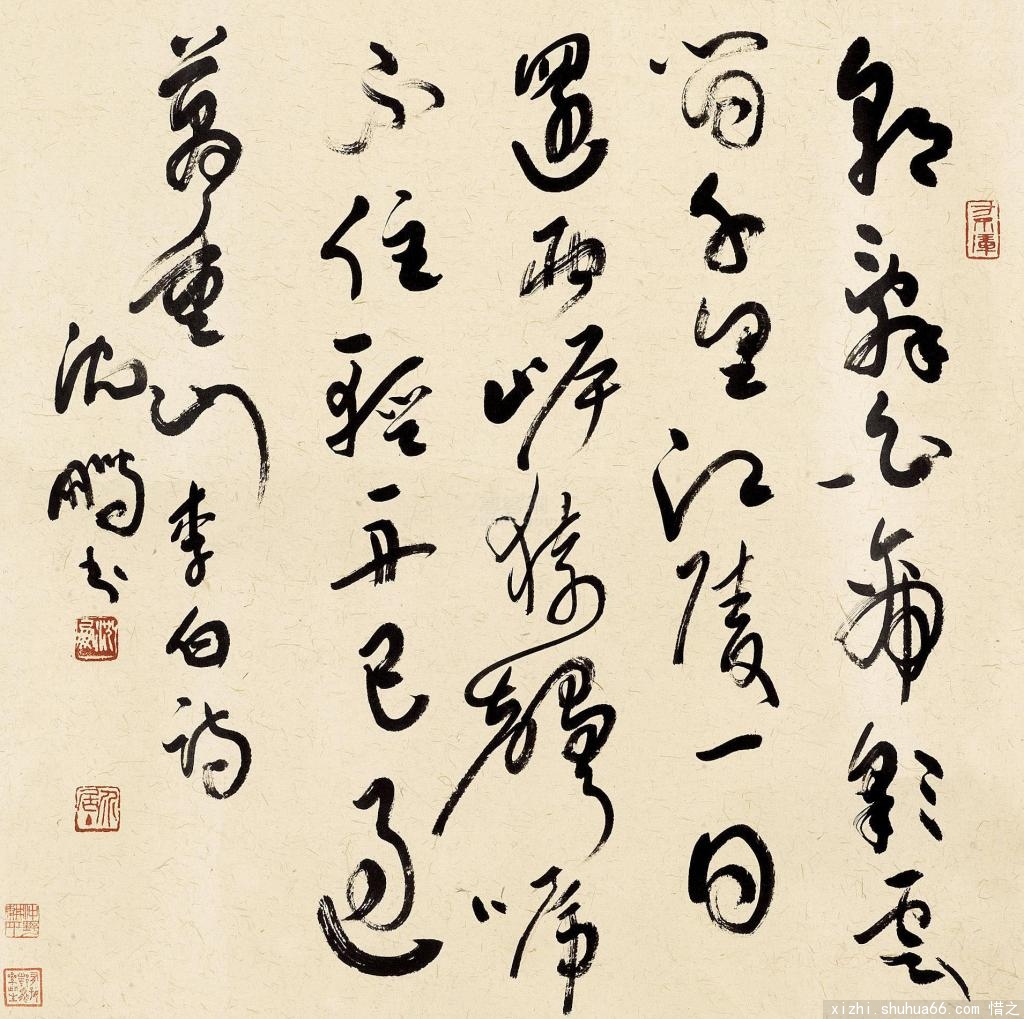 朝辭白帝彩雲
間千里江陵一日
還兩岸猿聲啼
不住輕舟已過
萬重山李白詩
沈鵬書
沈鵬
介居
xizhi.shuhua66.com 惜之